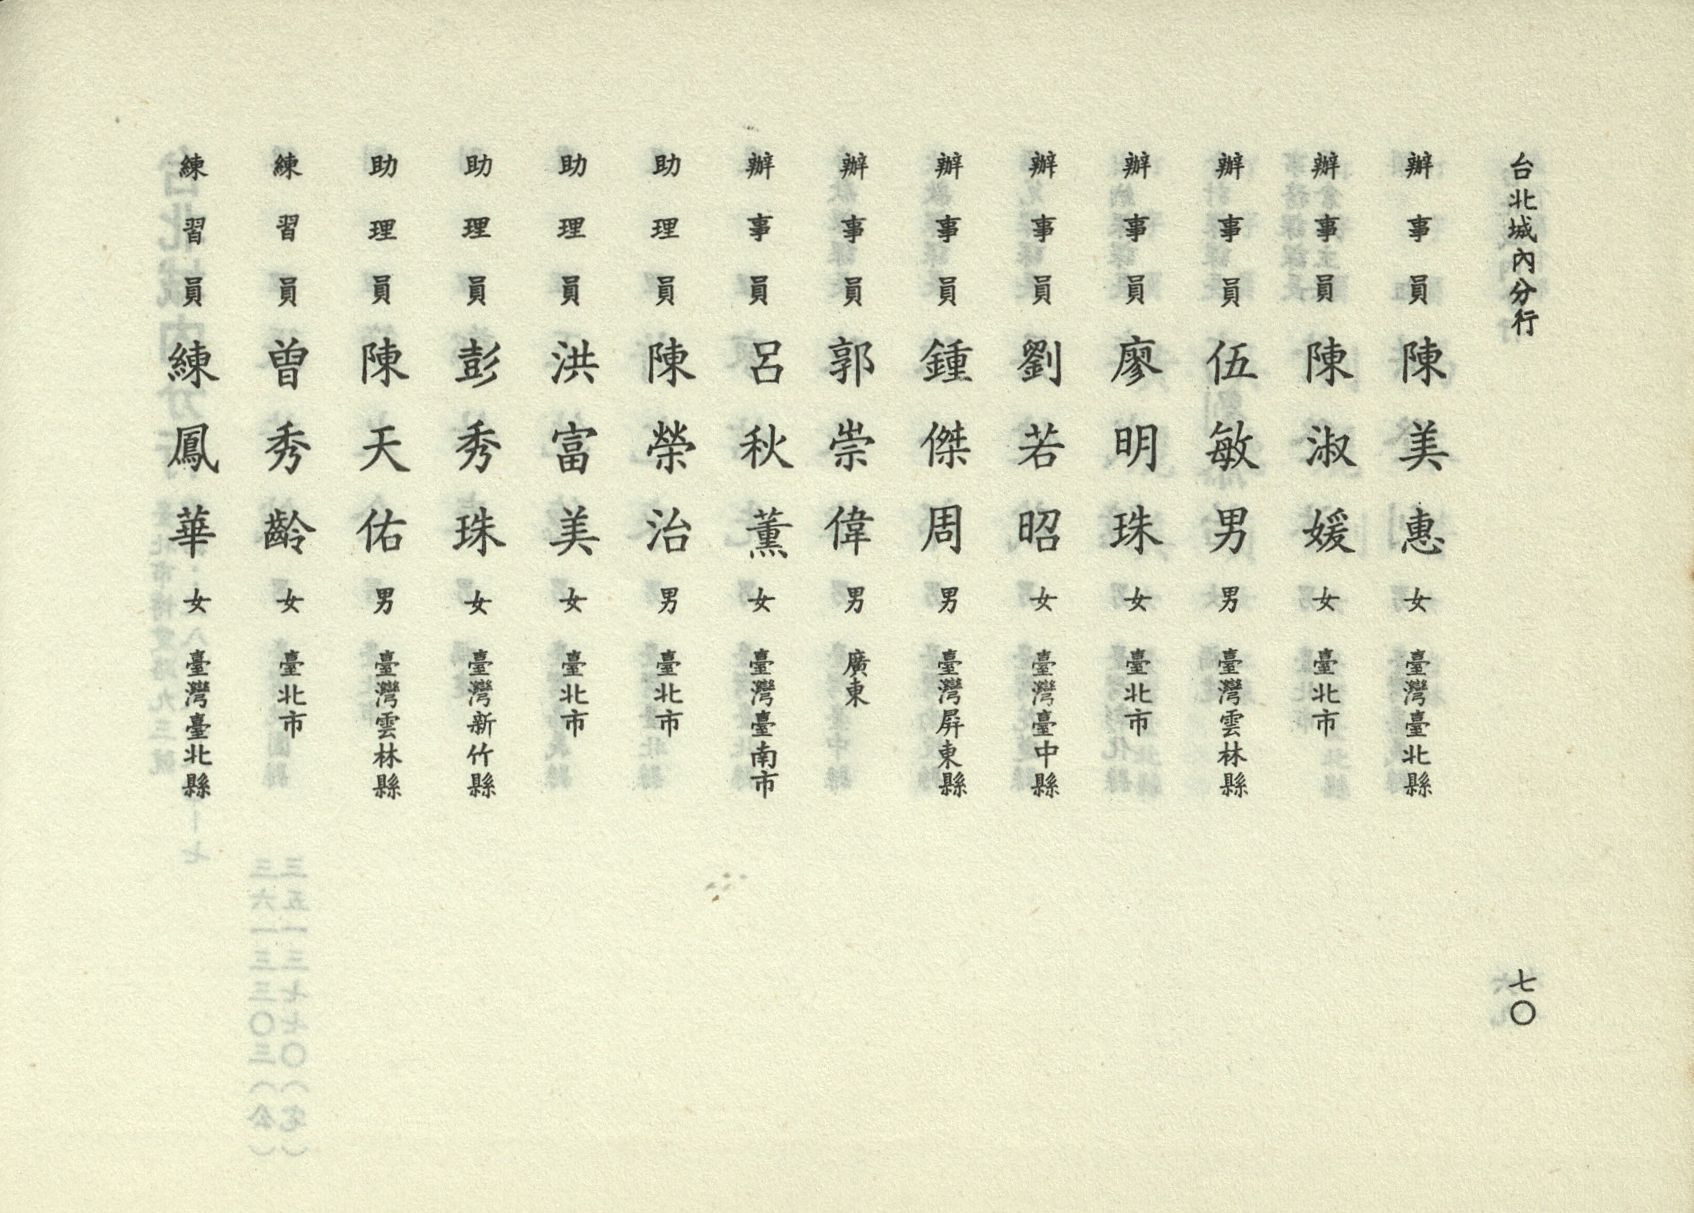 台北城內分行
七〇
辦事員 陳美惠 女 臺灣臺北縣
辦事員 陳淑媛 女 臺北市
辦事員 伍敏男 男 臺灣雲林縣
辦事員 廖明珠 女 臺北市
辦事員 劉若昭 女 臺灣臺中縣
辦事員 鍾傑周 男 臺灣屏東縣
辦事員 郭崇偉 男 廣東
辦事員 呂秋薰 女 臺灣臺南市
助理員 陳榮治 男 臺北市
助理員 洪富美 女 臺北市
助理員 彭秀珠 女 臺灣新竹縣
助理員 陳天佑 男 臺灣雲林縣
練習員 曾秀齡 女 臺北市
練習員 練鳳華 女 臺灣臺北縣